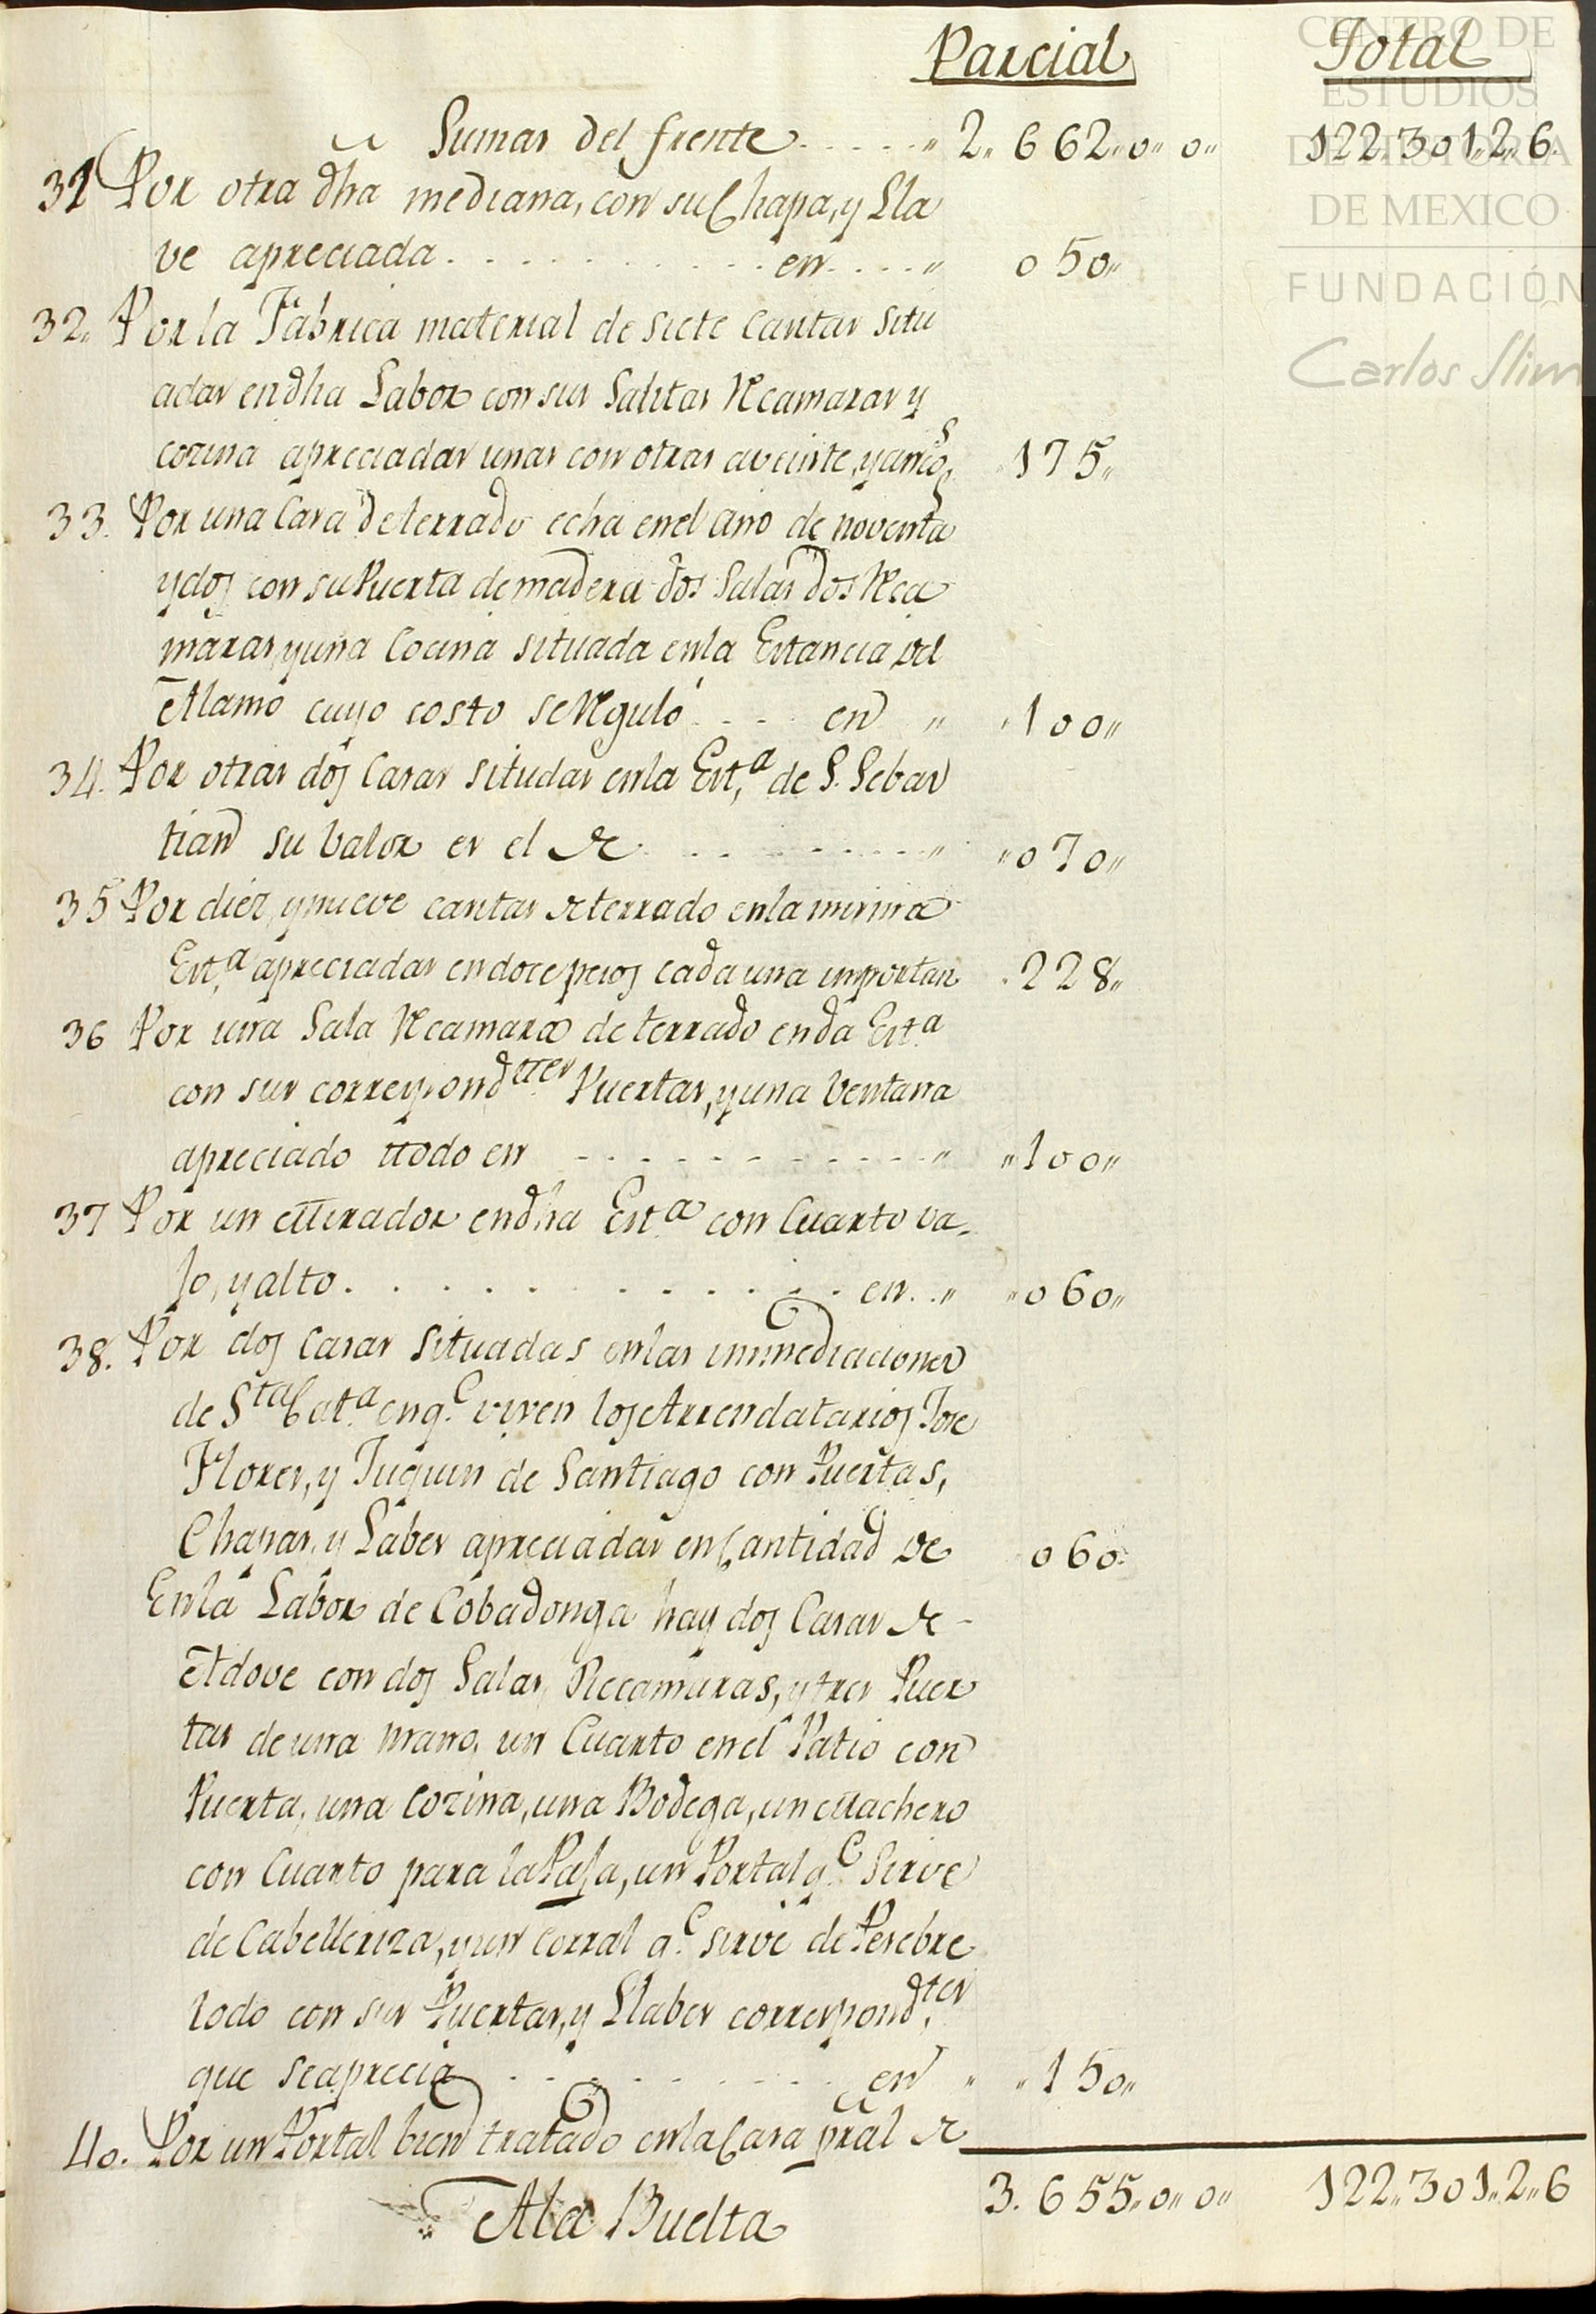 Parcial Total
Sumas del frente . . . . . " 2" 662" 0" 0" 122" 301" 2" 6.
31 Por otra dha mediana, con su Chapa, y Lla
ve apreciada . . . . . . . . . . . en . . . . " 050"
32. Por la Fabrica material de siete Cautas situ
adas en dha Labor con sus Salitas Recamaras y
cozina apreciadas unas con otras a veinte, y cinco ps. 175"
33. Por una Casa de terrado echa en el año de noventa
y dos con su Puerta de madera dos Salas dos Reca
maras, y una Cocina situada en la Estancia del
Alamo cuyo costo se Reguló . . . . en " " 100"
34. Por otras dos Casas situadas en la Esta. de S. Sebas
tian su valor es el de . . . . . . . . . . " " 070"
35 Por diez, y nueve cautas de terrado en la misma
Esta. apreciadas en doce pesos cada una importan . 228"
36 Por una Sala Recamara de terrado en da Esta.
con sus correspondttes Puertas, y una Ventana
apreciado ttodo en . . . . . . . . . . . . " " 100"
37 Por un Mirador en dha Esta. con Cuarto va-
jo, y alto . . . . . . . . . . . . . en . . " " 060"
38. Por dos Casas situadas en las inmediaciones
de Sta Cata. en qe. viven los Arrendatarios Jose
Flores, y Juquin de Santiago con Puertas,
Chapas, y Labes apreciadas en Cantidad de 060.
En la Labor de Cobadonga hay dos Casas de -
Adove con dos Salas, Recamaras, y tres Puer
tas de una mano, un Cuarto en el Patio con
Puerta, una Cozina, una Bodega, un Machero
con Cuarto para la Paja, un Portal qe. sirve
de Cabelleriza, y un corral qe. sirve de Pesebre
todo con sus Puertas, y Llabes correspondtes.
que se aprecia . . . . . . . . . . en " " 150"
40. Por un Portal bien tratado en la Casa pral de
Ala Buelta 3. 655" 0" 0" 122" 301" 2" 6
CENTRO DE
ESTUDIOS
DE HISTORIA
DE MEXICO
FUNDACIÓN
Carlos Slim